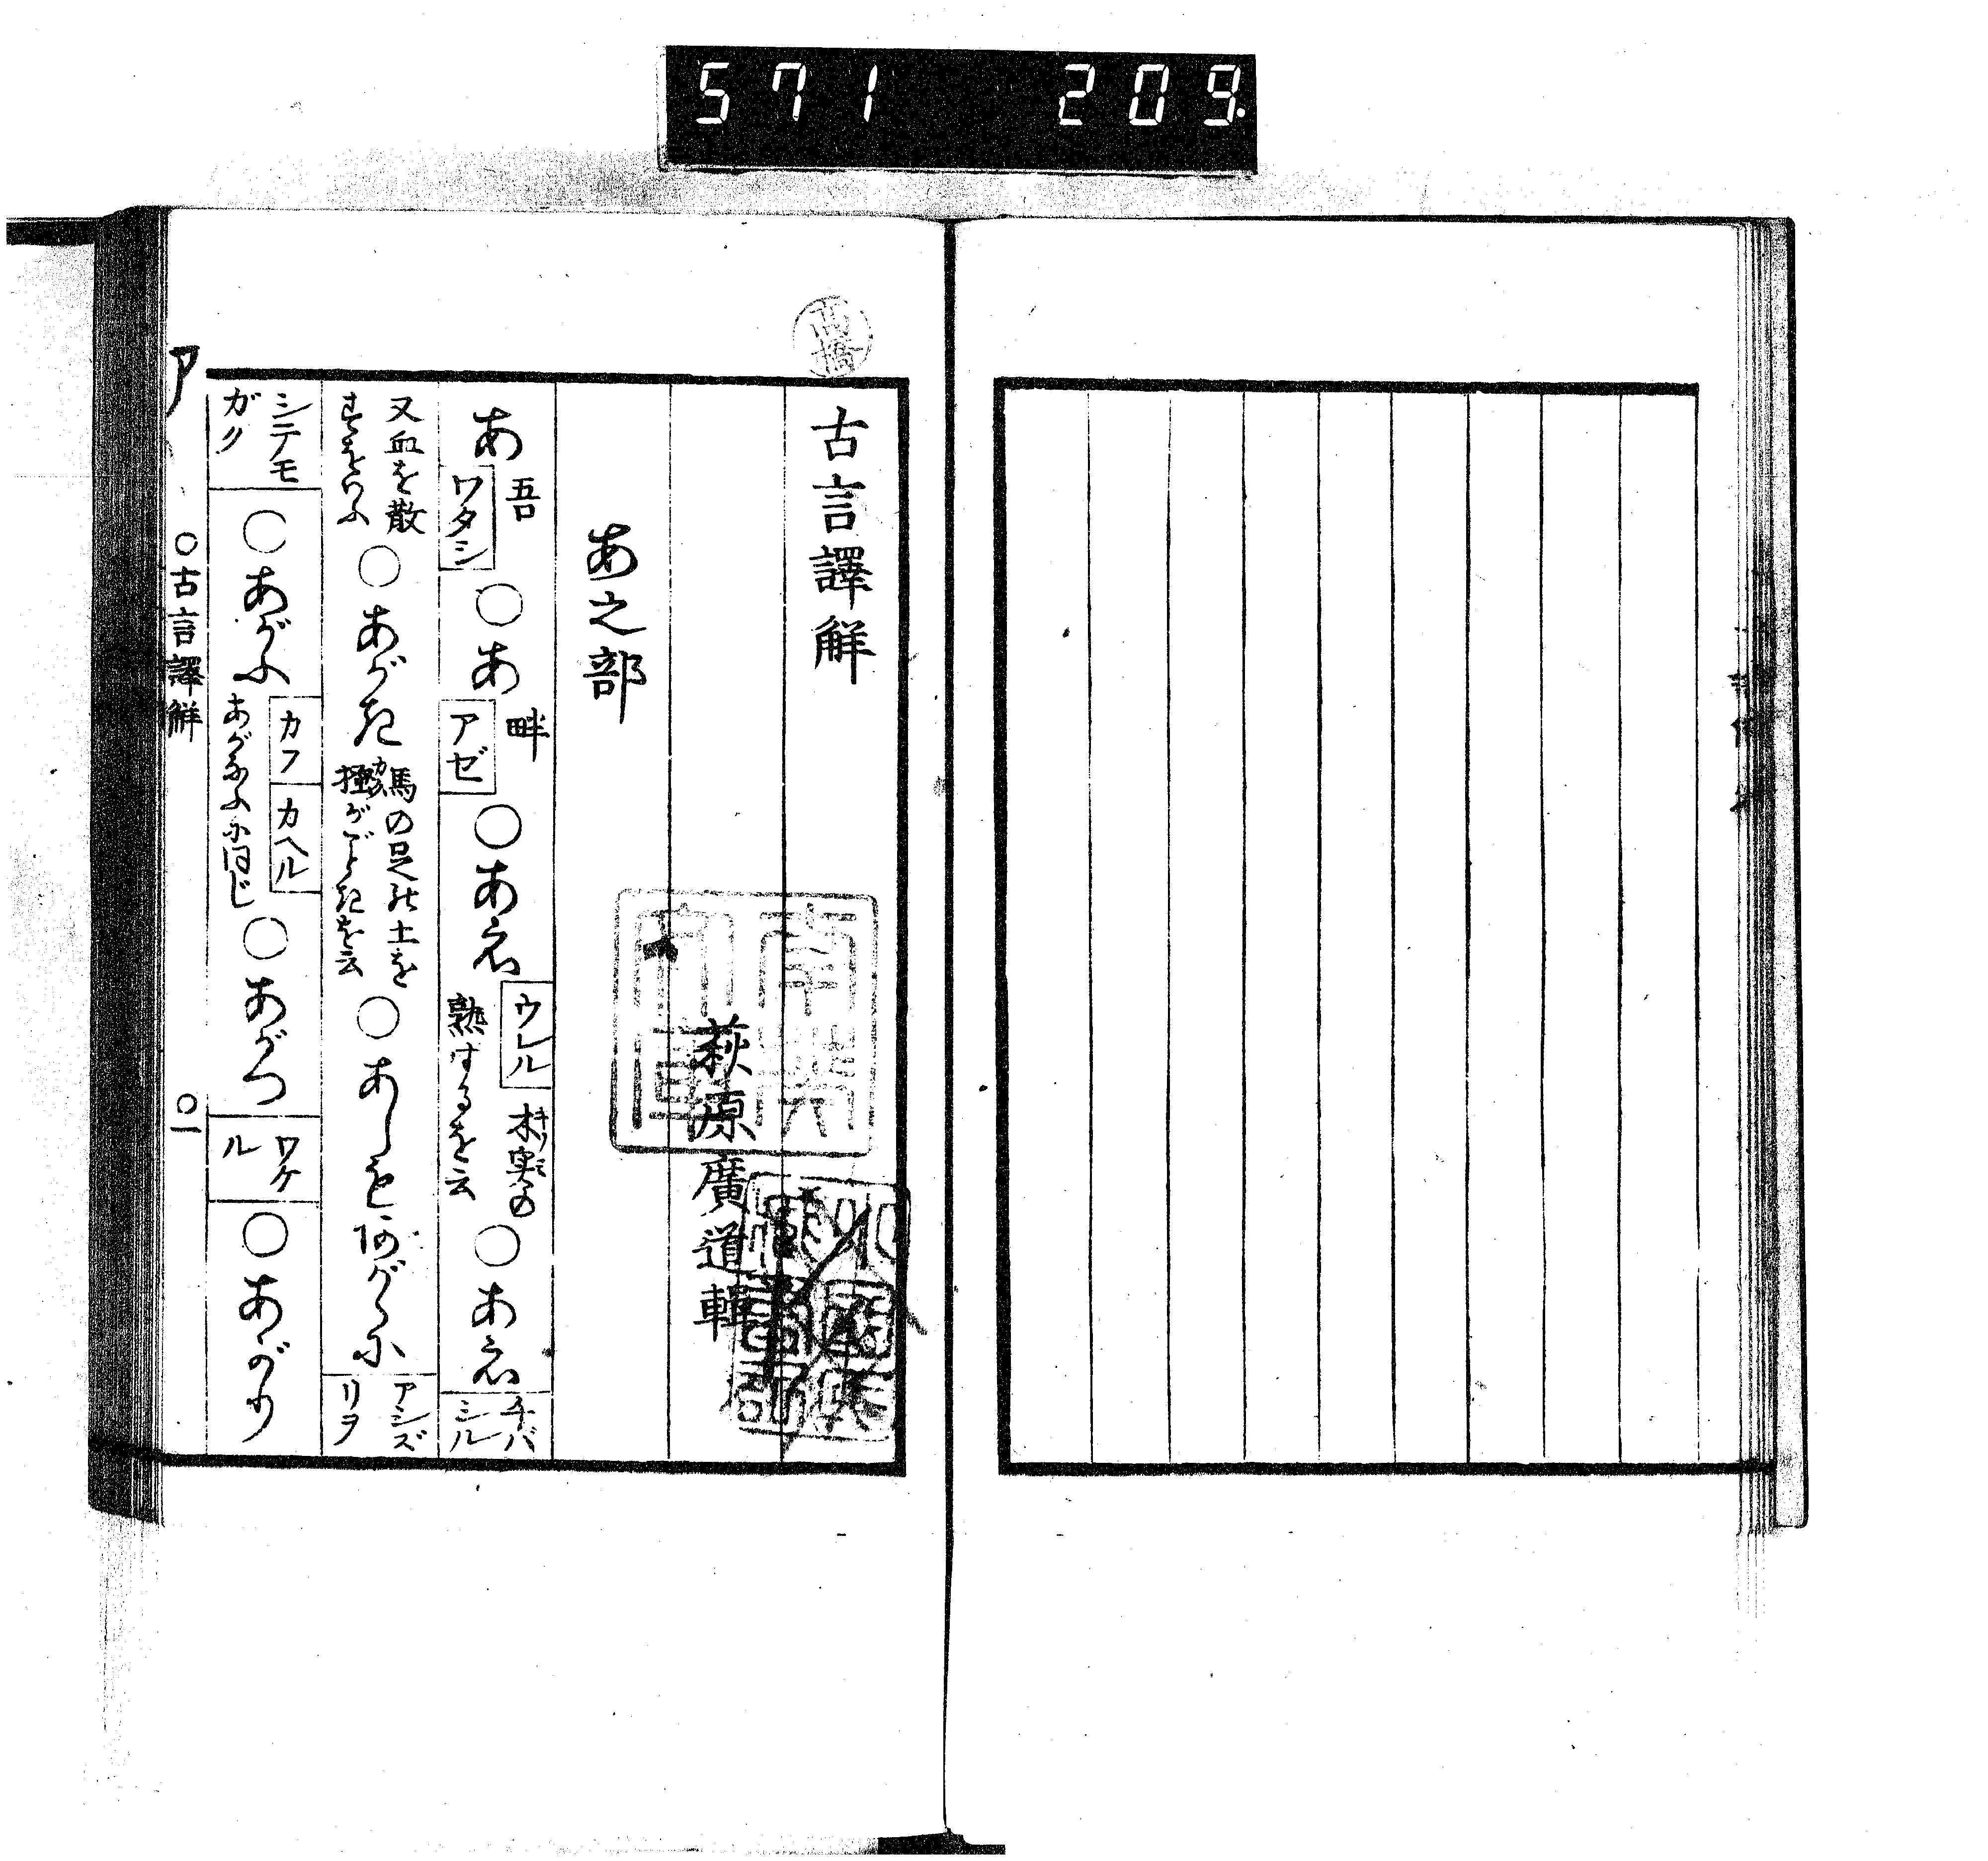 571 209
高橋
古言譯解
萩原廣道輯
あ之部
あ 吾 ワタシ ○あ 畔 アゼ ○あえ ウレル 木実の 熟するを云 ○あえ チバシル
又血を散すをいふ ○あがき 馬の足にて土をがごときを云 ○あしを阿がゝに アシズリヲ
シテモガク ○あがふ カフ カヘル あがなふに同じ ○あがつ ワケル ○あがり
ア ○古言譯解 ○一